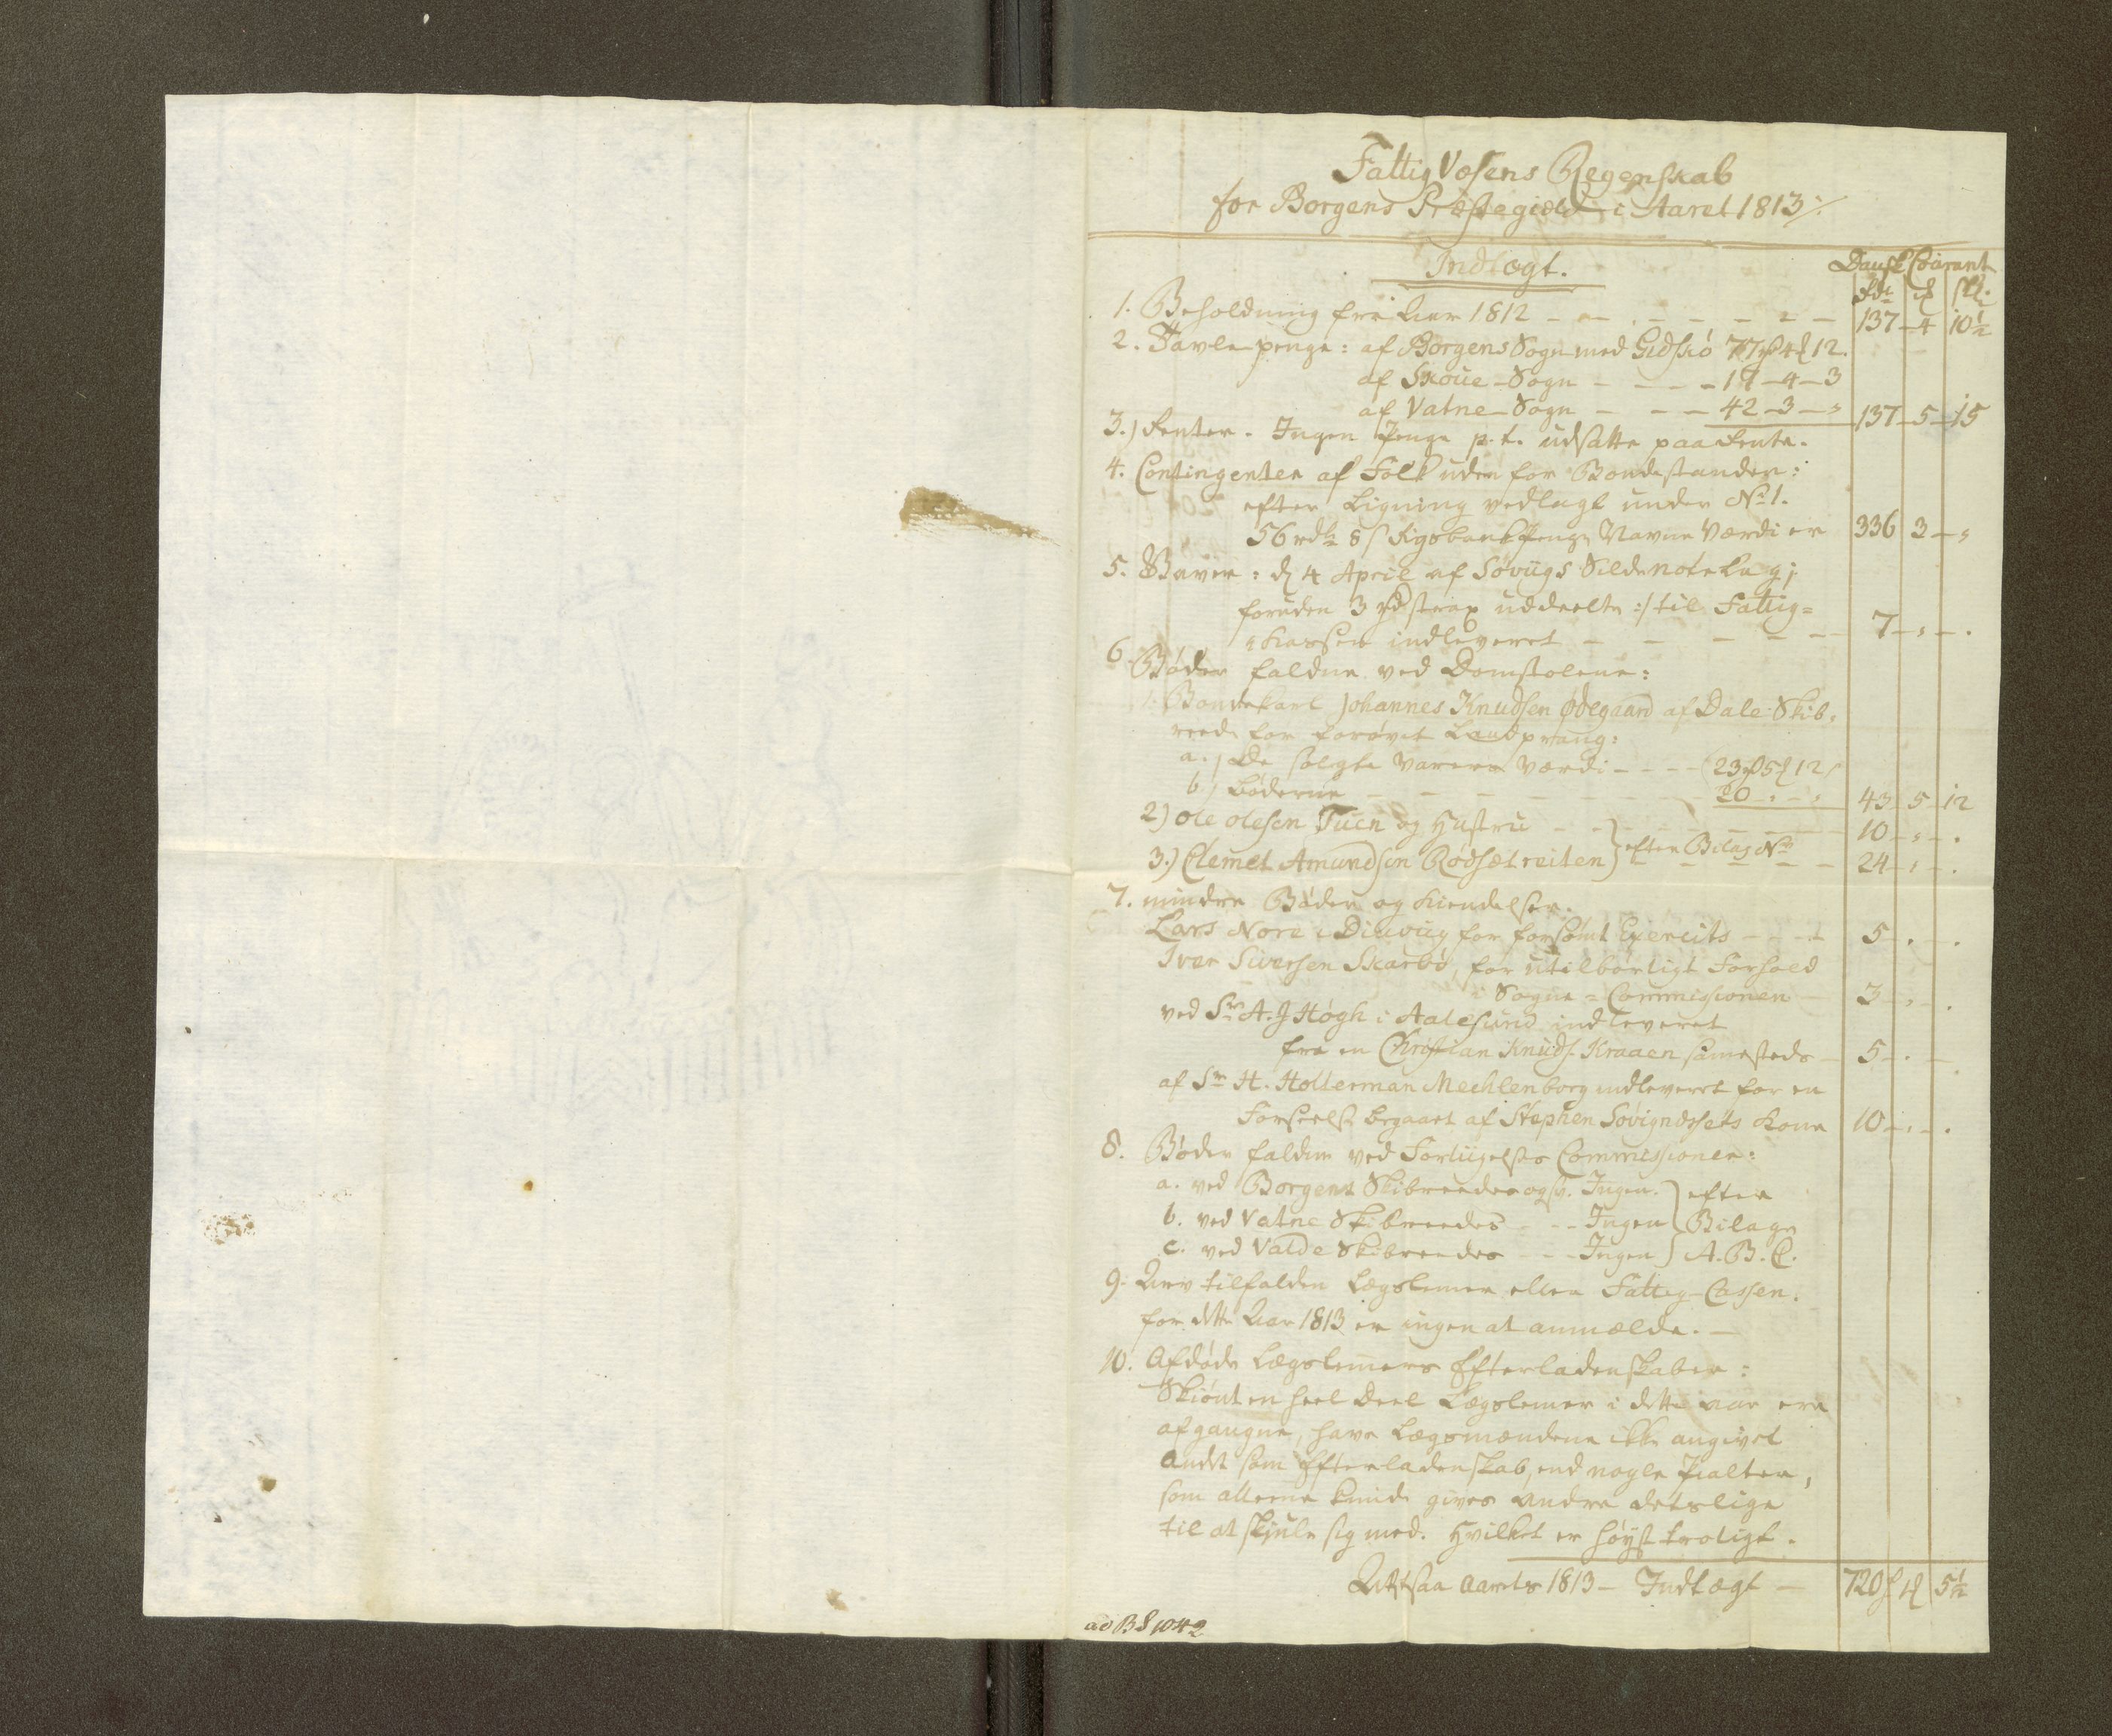 Fattig Væsens Regenskab
for Borgens Præstegield i Aaret 1813 ./.
Indtægt.
Dansk Courant
rdr | ß
1. Beholdning fra Aar 1812 - - - - - - - 137 - 4 10½
2. Tavlepenge: af Borgens Sogn med Gidskó 77 4 12.
af Skoue-Sogn - - - - 17 - 4 - 3
af Vatne-Sogn - - - 42 - 3 - " 137 - 5 - 15
3.) Renter. Ingen Penge p.t. udsatte paa Rente.
4. Contingenter af Folk uden for Bondestanden:
efter Ligning vedlagt under No 1.
56 rdlr 8 ß Rigsbankpenge Navne Værdi er 336 3 - "
5. Gaver: d 4 April af Søvigs Sildenotelag;
foruden 3 rd strax uddeelte :/ til Fattig=
Kassen indleveret - - - - - 7 - " - .
6 Bøder faldne ved Domstolene:
1. Bondekarl Johannes Knudsen Ødegaard af Dale Skib,
reede for forøvet Landprang:
a.) De solgte Varers Værdi - - - - 23 5 12
b.) Bøderne - - - - - - 20 - " - " 43 5 12
2) Ole Olesen Tuen og Hustru - - - - - - 10 - " - .
3.) Clemet Amundsen Rødsætreiten } efter Bilag No - - - - 24 - " - .
7. mindre Bøder og Kiendelser.
Lars Nore i Divvig for forsømt Exercits - - - - 5 . - .
Iver Siversen Skarbø, for utilbørligt Forhold
i Sogne = Commissionen - 3 - " - .
ved Sr A. J Høgh i Aalesund indleveret
fra en Christian Knuds. Kraaen samesteds - 5 - . -
af Sr H. Holterman Mechlenborg indleveret for en
Forseelse begaaet af Stephen Sovigndssets Kone 10 - . - .
8. Bøder faldne ved Forligelses Commissioner:
a. ved Borgens Skibreedes Ingen. } efter
b. ved Vatne Skibreedes - - - Ingen } Bilage
c. ved Valde Skibreedes - - - Ingen } A. B. C.
9. Arv tilfalden Lægslemer eller Fattig-Cassen.
for dette Aar 1813 er ingen at anmælde. -
10. Afdøde Lægslemers Efterladenskaber:
Skiønt en heel Deel Lægslemer i dette Aar ere
afgangne, have Lægsmændene ikke angivet
Andet som Efterladenskab, end nogle Pialter,
som alleene kunde gives andre deslige
til at skiule sig med. Hvilket er høyst troligt.
Altsaa Aarets 1813 - Indtægt - 720 4 5½
ad B8 1042